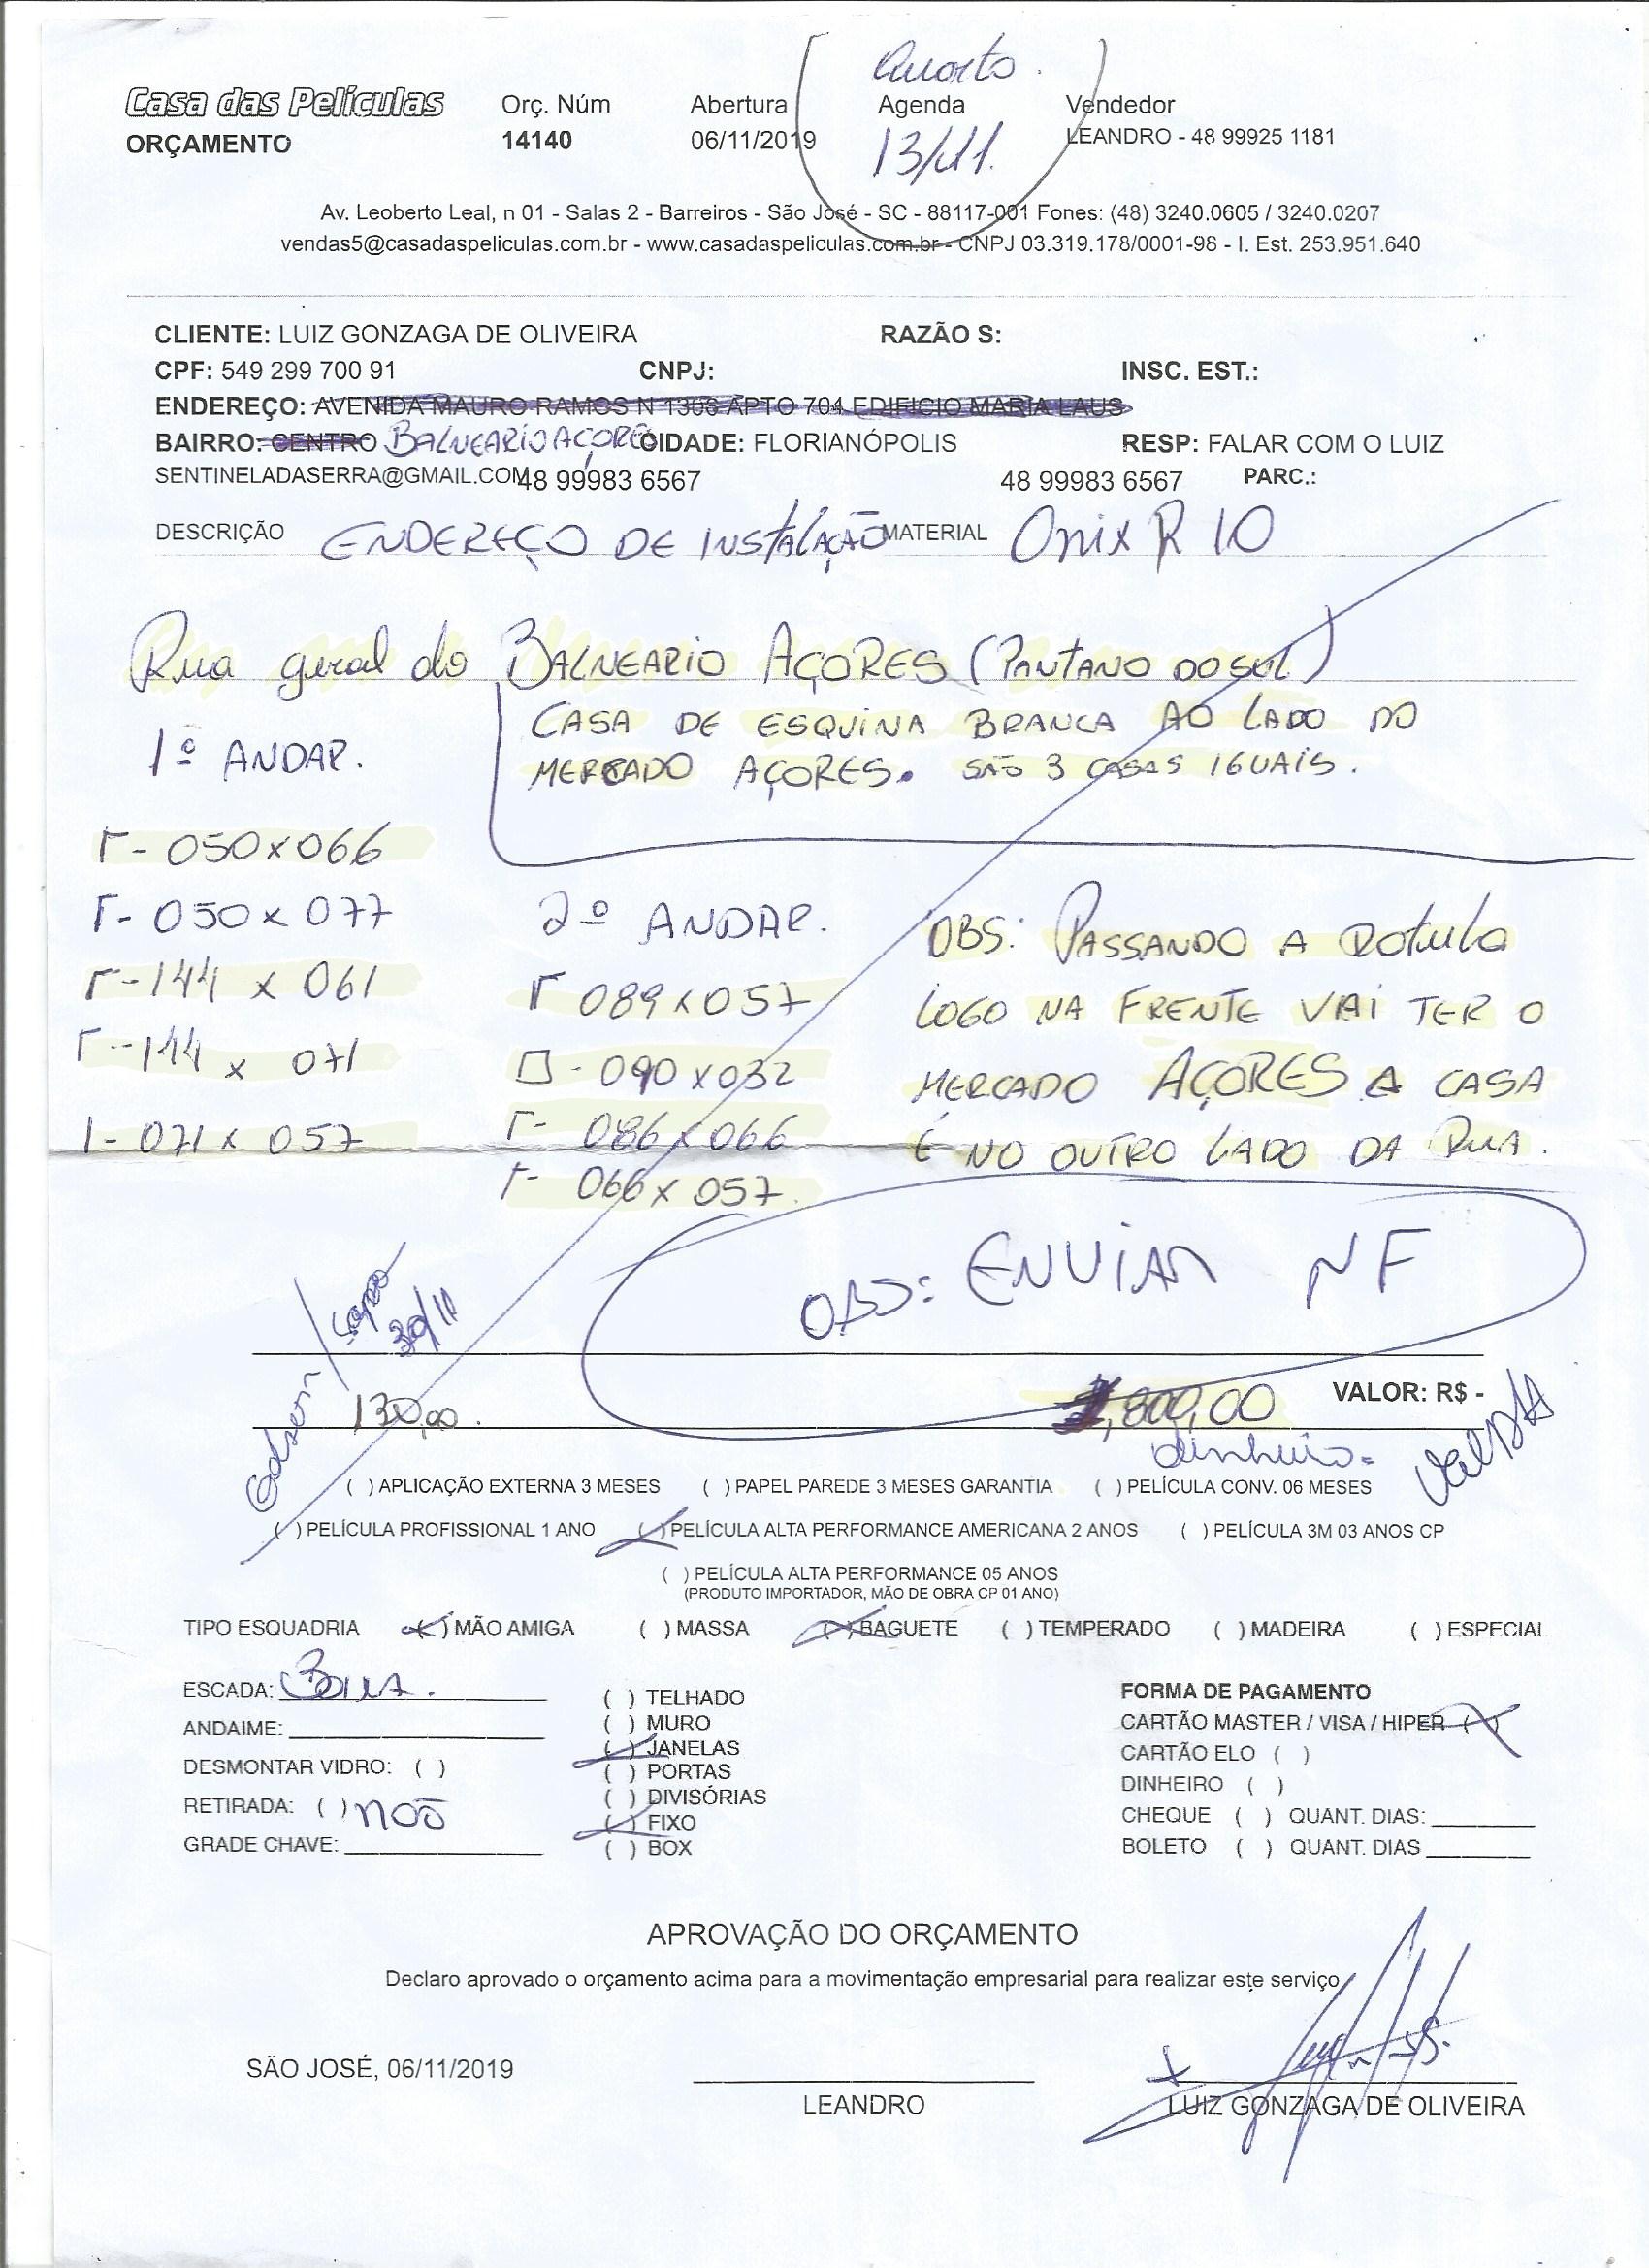 Quarta.
Casa das Películas Orç. Núm Abertura Agenda Vendedor
ORÇAMENTO 14140 06/11/2019 13/11. LEANDRO - 48 99925 1181
Av. Leoberto Leal, n 01 - Salas 2 - Barreiros - São José - SC - 88117-001 Fones: (48) 3240.0605 / 3240.0207
vendas5@casadaspeliculas.com.br - www.casadaspeliculas.com.br - CNPJ 03.319.178/0001-98 - I. Est. 253.951.640
CLIENTE: LUIZ GONZAGA DE OLIVEIRA RAZÃO S:
CPF: 549 299 700 91 CNPJ: INSC. EST.:
ENDEREÇO: AVENIDA MAURO RAMOS N 1306 APTO 704 EDIFICIO MARIA LAUS
BAIRRO: CENTRO BALNEARIO AÇORES CIDADE: FLORIANÓPOLIS RESP: FALAR COM O LUIZ
SENTINELADASERRA@GMAIL.COM 48 99983 6567 48 99983 6567 PARC.:
DESCRIÇÃO ENDEREÇO DE INSTALAÇÃO MATERIAL Onix R 10
Rua geral do BALNEARIO AÇORES (PANTANO DO SUL)
CASA DE ESQUINA BRANCA AO LADO DO
MERCADO AÇORES. SÃO 3 CASAS IGUAIS.
1º ANDAR.
050x066
050x077
144 x 061
144 x 071
1- 071 x 057
2º ANDAR.
089x057
090x032
086x066
1- 066x057
OBS: PASSANDO A ROTULA
LOGO NA FRENTE VAI TER O
MERCADO AÇORES A CASA
É NO OUTRO LADO DA RUA.
OBS: ENVIAR NF
Edson / Sapo
30/11
130,00. 800,00 VALOR: R$ -
dinheiro
( ) APLICAÇÃO EXTERNA 3 MESES ( ) PAPEL PAREDE 3 MESES GARANTIA ( ) PELÍCULA CONV. 06 MESES
( ) PELÍCULA PROFISSIONAL 1 ANO ( ) PELÍCULA ALTA PERFORMANCE AMERICANA 2 ANOS ( ) PELÍCULA 3M 03 ANOS CP
( ) PELÍCULA ALTA PERFORMANCE 05 ANOS
(PRODUTO IMPORTADOR, MÃO DE OBRA CP 01 ANO)
TIPO ESQUADRIA (x) MÃO AMIGA ( ) MASSA (x) BAGUETE ( ) TEMPERADO ( ) MADEIRA ( ) ESPECIAL
ESCADA:
ANDAIME:
DESMONTAR VIDRO: ( )
RETIRADA: ( ) não
GRADE CHAVE:
( ) TELHADO
( ) MURO
( ) JANELAS
( ) PORTAS
( ) DIVISÓRIAS
( ) FIXO
( ) BOX
FORMA DE PAGAMENTO
CARTÃO MASTER / VISA / HIPER (x)
CARTÃO ELO ( )
DINHEIRO ( )
CHEQUE ( ) QUANT. DIAS:
BOLETO ( ) QUANT. DIAS
APROVAÇÃO DO ORÇAMENTO
Declaro aprovado o orçamento acima para a movimentação empresarial para realizar este serviço
SÃO JOSÉ, 06/11/2019
LEANDRO
x
LUIZ GONZAGA DE OLIVEIRA